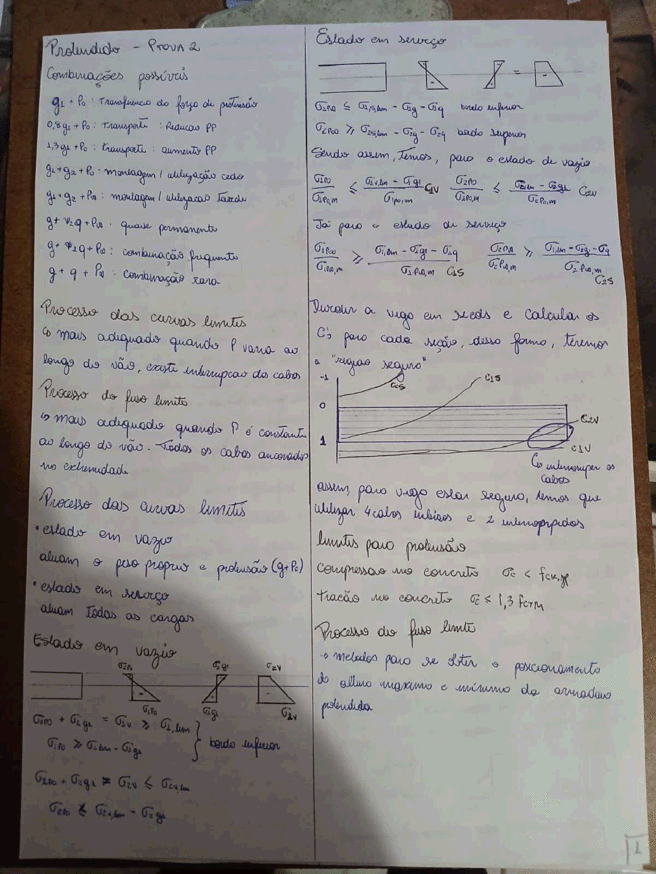 Protendido - Prova 2
Combinações possíveis
g1 + P0 : transferencia da força de protensão
0,8g1 + P0 : transporte : Redução PP
1,3g1 + P0 : transporte : aumento PP
g1 + g2 + P0 : montagem / utilização cedo
g1 + g2 + P∞ : montagem / utilização tarde
g + ψ2q + P∞ : quase permanente
g + ψ1q + P∞ : combinação frequente
g + q + P∞ : combinação rara
Processo das curvas limites
↳ mais adequado quando P varia ao
longo do vão, existe interrupção de cabos
Processo do fuso limite
↳ mais adequado quando P é constante
ao longo do vão. Todos os cabos ancorados
na extremidade
Processo das curvas limites
• estado em vazio
atuam o peso próprio e protensão (g+P0)
• estado em serviço
atuam todas as cargas
Estado em vazio
σ2P0 σ2g1 σ2v
σ1P0 σ1g1 σ1v
σ1P0 + σ1g1 = σ1v ≥ σ1v,lim
σ1P0 ≥ σ1v,lim - σ1g1 } bordo inferior
σ2P0 + σ2g1 = σ2v ≤ σ2v,lim
σ2P0 ≤ σ2v,lim - σ2g1
Estado em serviço
bordo inferior
bordo superior
Sendo assim, temos, para o estado de vazio
C1V C2V
Já para o estado de serviço
C1S
C2S
Dividir a viga em seções e calcular os
Ci para cada seção, dessa forma, teremos
a "região segura"
-1
C2S
C1S
0
C2V
1
C1V
↳ interromper os
cabos
assim, para viga estar segura, temos que
utilizar 4 cabos inteiros e 2 interrompidos
limites para protensão
compressão no concreto
tração no concreto
Processo do fuso limite
→ metodos para se obter o posicionamento
de altura maximo e mínimo da armadura
protendida
1